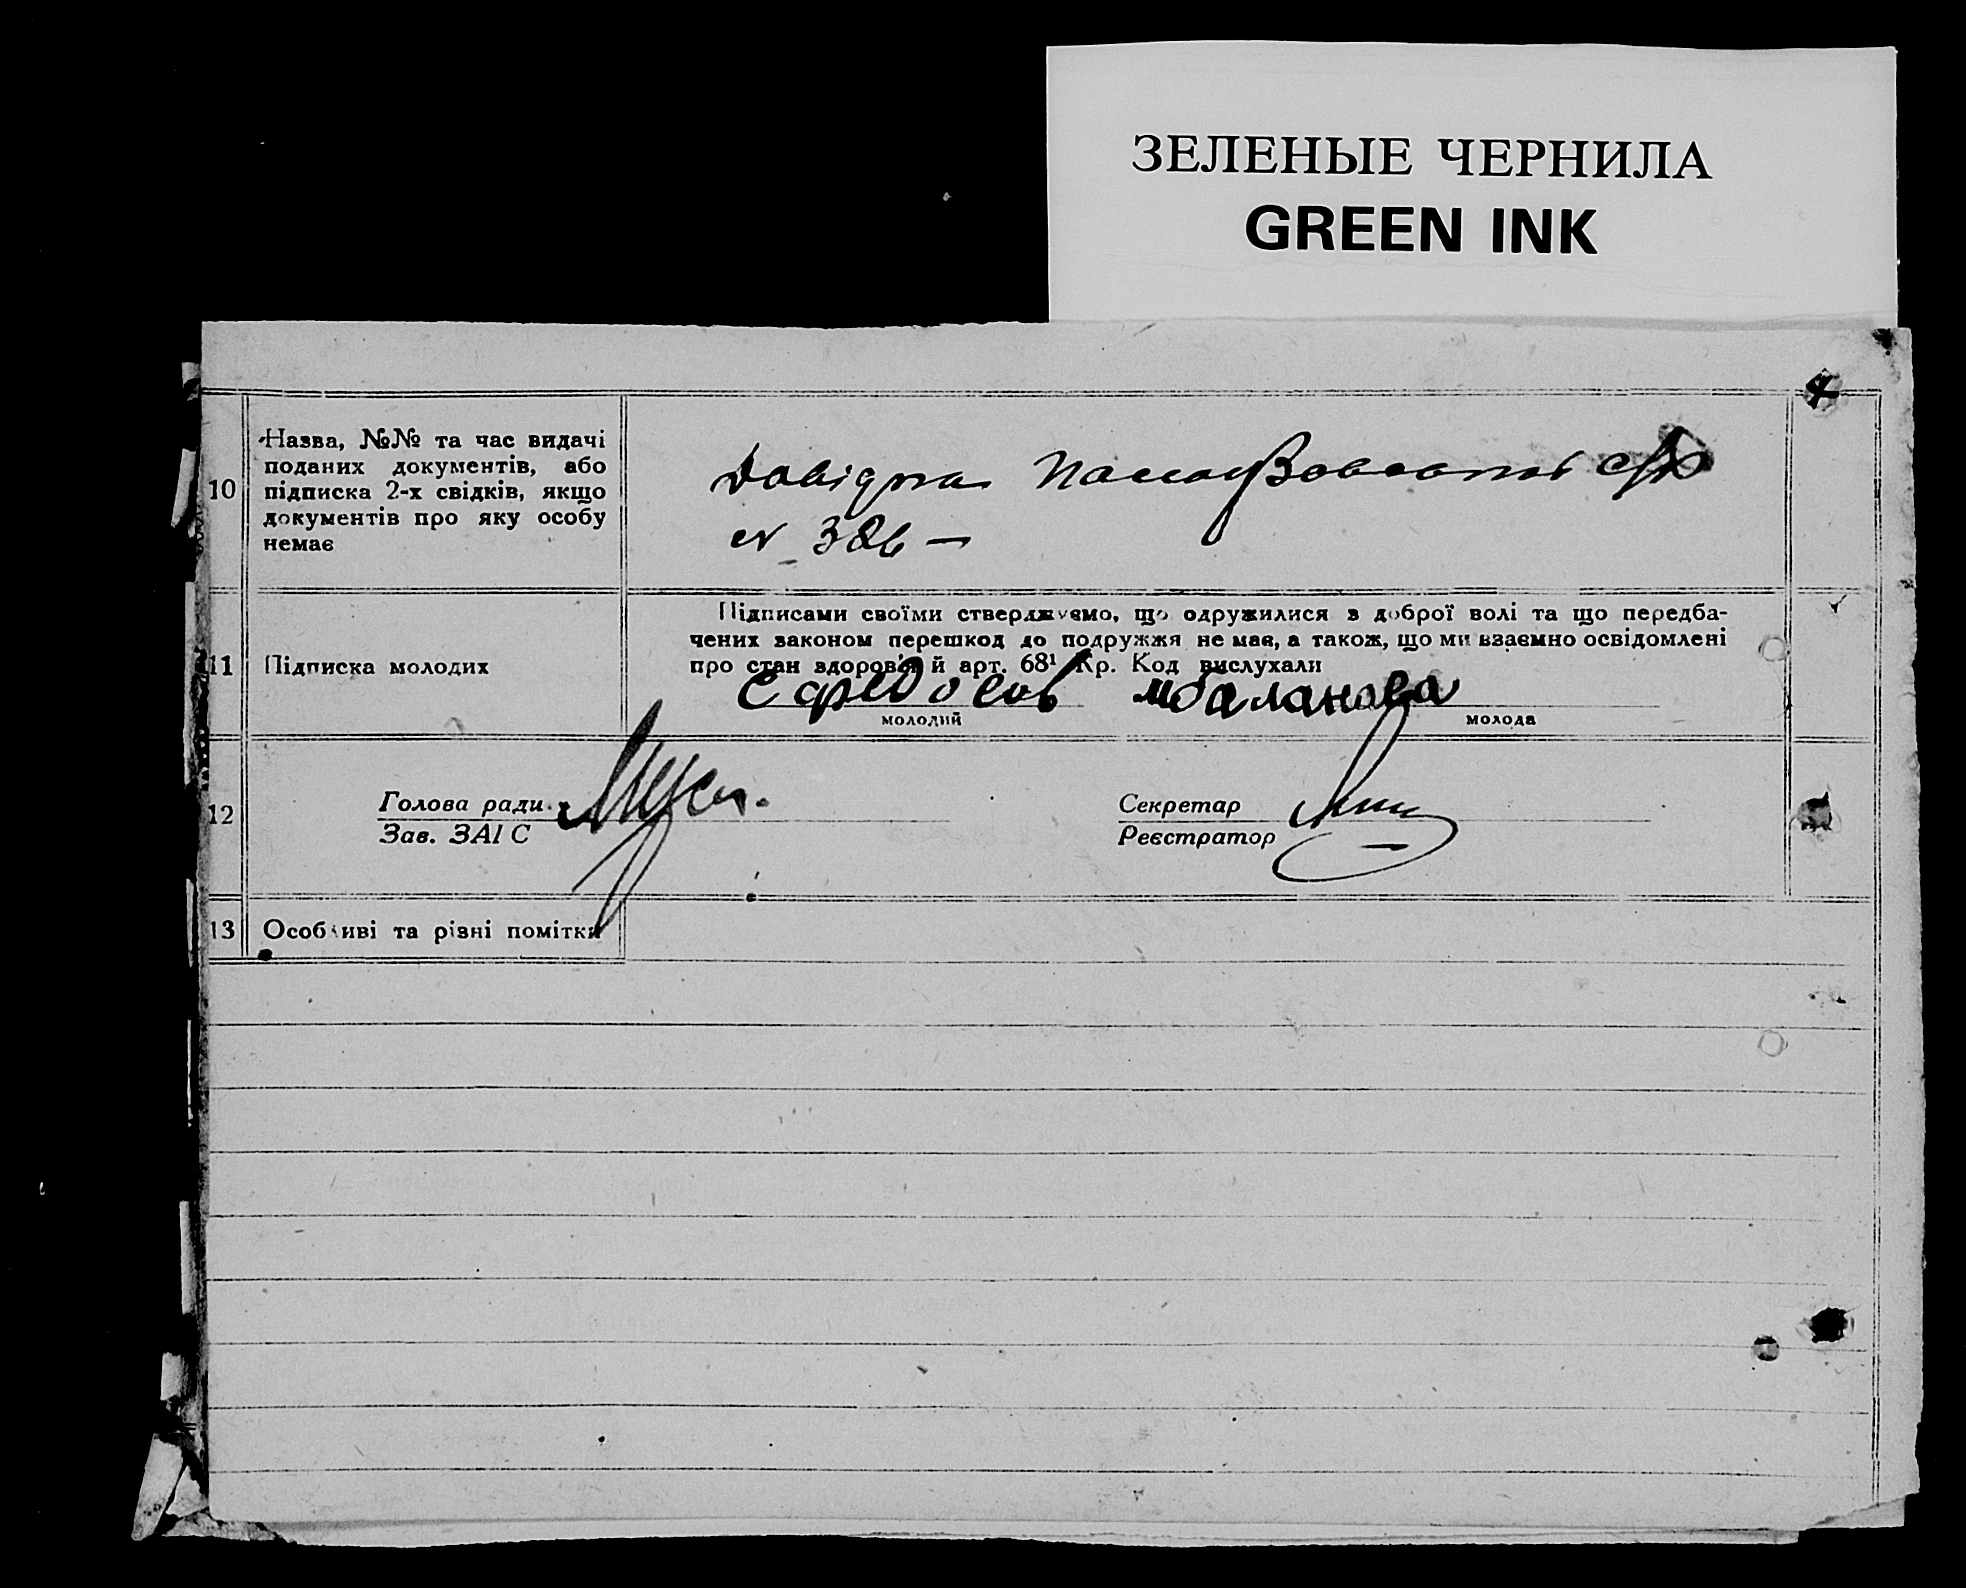 ЗЕЛЕНЫЕ ЧЕРНИЛА
GREEN INK
4
10
Назва, №№ та час видачі
поданих документів, або
підписка 2-х свідків, якщо
документів про яку особу
немає
Довідка
№ 326 —
11
Підписка молодих
Підписами своїми стверджуємо, що одружилися з доброї волі та що передба-
чених законом перешкод до подружжя не має, а також, що ми взаємно освідомлені
про стан здоров'я й арт. 68¹ Кр. Код вислухали
Баланова
молодий
молода
12
Голова ради
Зав. ЗАІС
Секретар
Реєстратор
13
Особливі та різні помітки